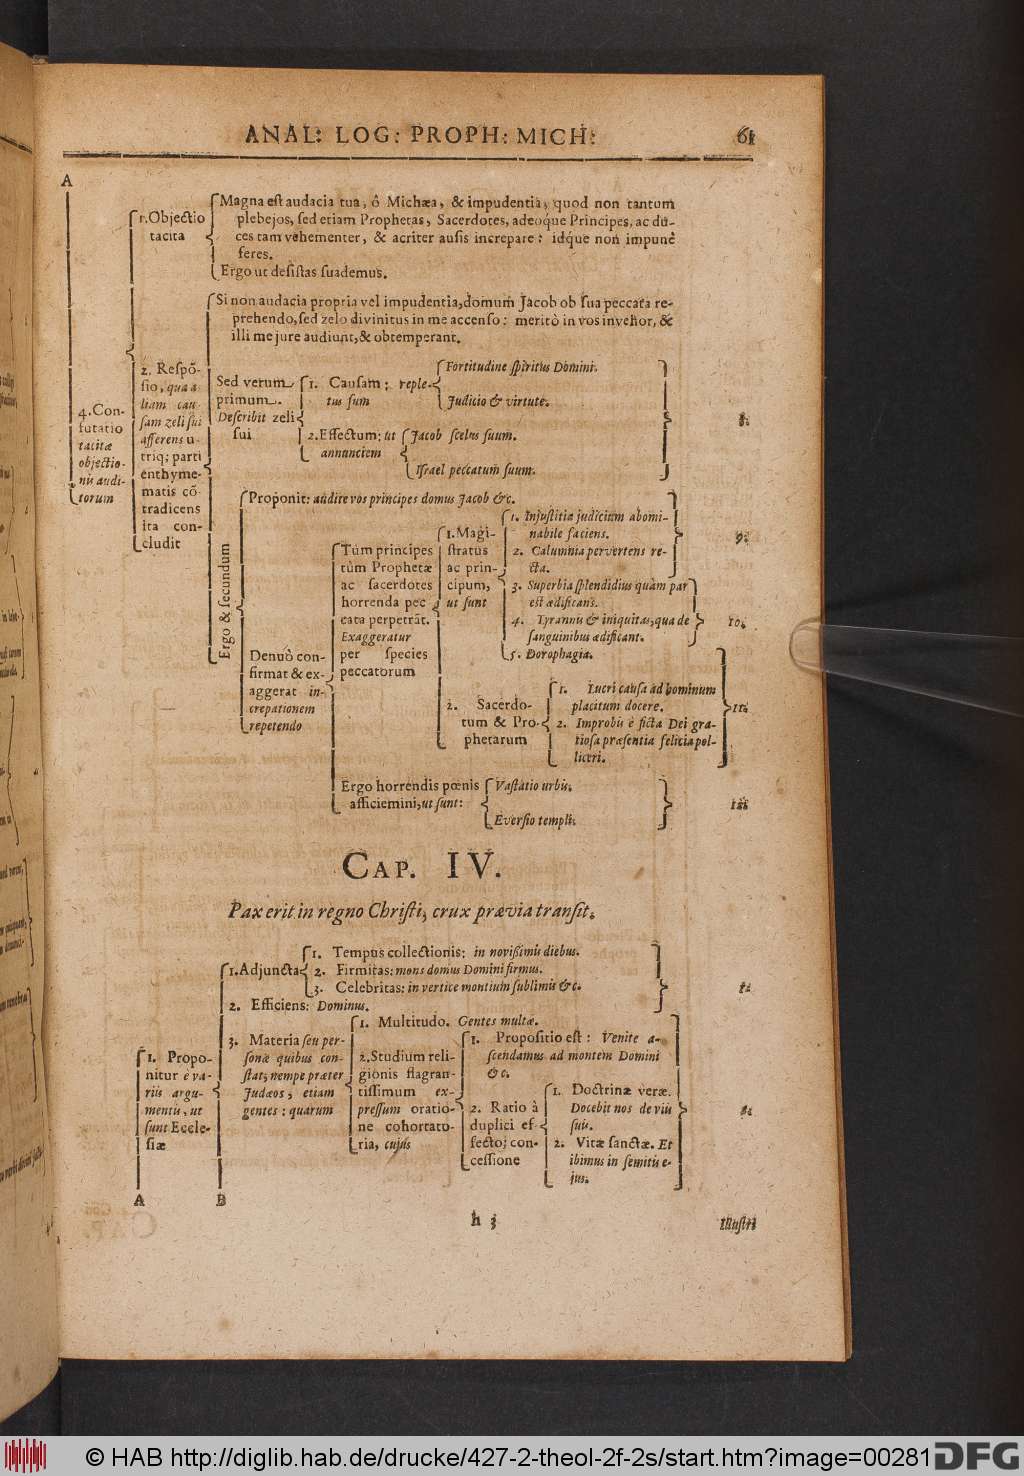 ANAL: LOG: PROPH: MICH: 61
A
1. Objectio
tacita
Magna est audacia tua, ô Michæa, & impudentia, quod non tantum
plebejos, sed etiam Prophetas, Sacerdotes, adeoque Principes, ac du-
ces tam vehementer, & acriter ausis increpare: idque non impunè
feres.
Ergo ut desistas suademus.
4. Con-
futatio
tacitæ
objectio-
nis audi-
torum
2. Respō-
sio, qua a
liam cau-
sam zeli sui
afferens u-
triq; parti
enthyme-
matis cō-
tradicens
ita con-
cludit
Si non audacia propria vel impudentia, domum Jacob ob sua peccata re-
prehendo, sed zelo divinitus in me accenso: meritò in vos invehor, &
illi me jure audiunt, & obtemperant.
Sed verum
primum.
Describit zeli
sui
1. Causam: reple-
tus sum
Fortitudine spiritus Domini.
Judicio & virtute.
2. Effectum: ut
annunciem
Jacob scelus suum.
Israel peccatum suum.
8.
Ergo & secundum
Proponit: audite vos principes domus Jacob &c.
Denuò con-
firmat & ex-
aggerat in-
crepationem
repetendo
Tùm principes
tùm Prophetæ
ac sacerdotes
horrenda pec
cata perpetrāt.
Exaggeratur
per species
peccatorum
1. Magi-
stratus
ac prin-
cipum,
ut sunt
1. Injustitia judicium abomi-
nabile faciens.
2. Calumnia pervertens re-
cta.
9.
3. Superbia splendidius quàm par
est ædificans.
4. Tyrannis & iniquitas, qua de
sanguinibus ædificant.
10.
5. Dorophagia.
2. Sacerdo-
tum & Pro-
phetarum
1. Lucri causa ad hominum
placitum docere.
2. Improbis è ficta Dei gra-
tiosa præsentia felicia pol-
liceri.
11.
Ergo horrendis pœnis
afficiemini, ut sunt:
Vastatio urbis.
Eversio templi.
12.
CAP. IV.
Pax erit in regno Christi, crux prævia transit.
1. Propo-
nitur è va-
riis argu-
mentis, ut
sunt Eccle-
siæ
1. Adjuncta
1. Tempus collectionis: in novißimis diebus.
2. Firmitas: mons domus Domini firmus.
3. Celebritas: in vertice montium sublimis &c.
2. Efficiens: Dominus.
3. Materia seu per-
sonæ quibus con-
stat; nempe præter
Judæos, etiam
gentes: quarum
1. Multitudo. Gentes multæ.
2. Studium reli-
gionis flagran-
tissimum ex-
pressum oratio-
ne cohortato-
ria, cujus
1. Propositio est: Venite a-
scendamus ad montem Domini
&c.
2. Ratio à
duplici ef-
fecto; con-
cessione
1. Doctrinæ veræ.
Docebit nos de viis
suis.
2. Vitæ sanctæ. Et
ibimus in semitis e-
jus.
A B
h 3
Illustri
© HAB http://diglib.hab.de/drucke/427-2-theol-2f-2s/start.htm?image=00281
DFG